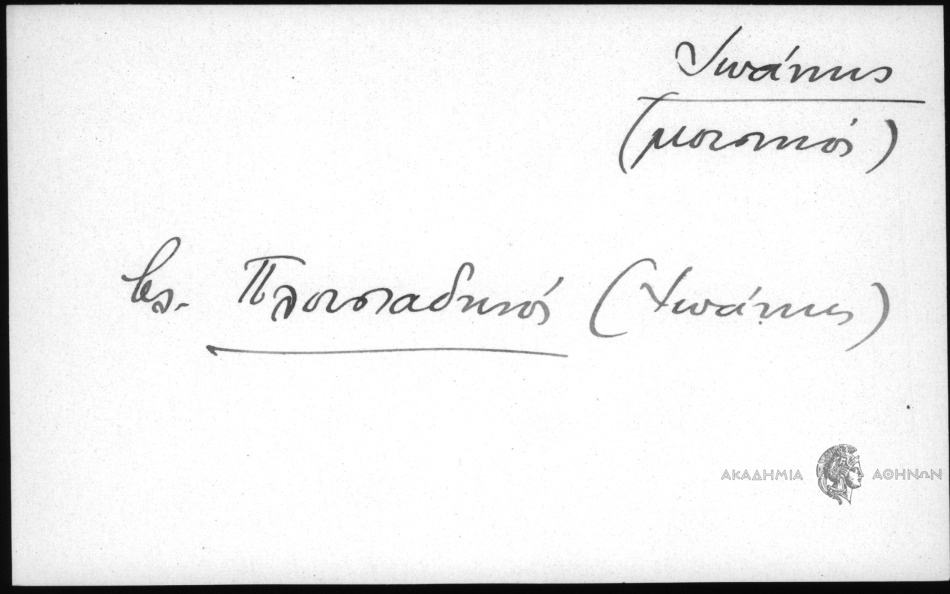 Ἰωάννης
(μουσικός)
βλ. Πλουσιαδηνός (Ἰωάννης)
ΑΚΑΔΗΜΙΑ ΑΘΗΝΩΝ